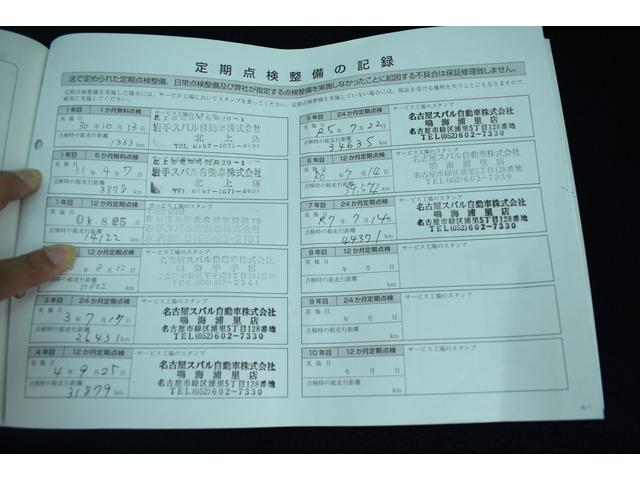 定期点検整備の記録
法で定められた定期点検整備、日常点検整備及び弊社が指定する点検整備を実施しなかったことに起因する不具合は保証修理致しません。
定期点検整備を実施した場合には、サービス工場においてスタンプを貰ってください。定期点検整備を実施していない場合には、保証を受ける権利を失うことにもなりますので、
確実に実施してください。
1年目 1か月無料点検 サービス工場のスタンプ
実施日 30年10月13日
岩手スバル自動車株式会社
点検時の総走行距離 1363km
北上店
1年目 6か月無料点検 サービス工場のスタンプ
実施日 31年4月7日
岩手スバル自動車株式会社
点検時の総走行距離 8878km
北上店
1年目 12か月定期点検 サービス工場のスタンプ
実施日 01.8.25
点検時の総走行距離 14122km
12か月定期点検 サービス工場のスタンプ
年8月22日
点検時の総走行距離
3年目 24か月定期点検 サービス工場のスタンプ
実施日 3年7月17日
名古屋スバル自動車株式会社
鳴海浦里店
点検時の総走行距離 26431km
名古屋市緑区浦里5丁目128番地
TEL(052)602-7330
4年目 12か月定期点検 サービス工場のスタンプ
実施日 4年9月25日
名古屋スバル自動車株式会社
鳴海浦里店
点検時の総走行距離 31879km
名古屋市緑区浦里5丁目128番地
TEL(052)602-7330
5年目 24か月定期点検 サービス工場のスタンプ
実施日 R5年7月22日
名古屋スバル自動車株式会社
鳴海浦里店
点検時の総走行距離 34635km
名古屋市緑区浦里5丁目128番地
TEL(052)602-7330
6年目 12か月定期点検 サービス工場のスタンプ
実施日 R6年7月14日
名古屋スバル自動車株式会社
鳴海浦里店
点検時の総走行距離 km
名古屋市緑区浦里5丁目128番地
TEL(052)602-7330
7年目 24か月定期点検 サービス工場のスタンプ
実施日 R7年7月14日
名古屋スバル自動車株式会社
鳴海浦里店
点検時の総走行距離 44371km
名古屋市緑区浦里5丁目128番地
TEL(052)602-7330
8年目 12か月定期点検 サービス工場のスタンプ
実施日 年月日
点検時の総走行距離 km
9年目 24か月定期点検 サービス工場のスタンプ
実施日 年月日
点検時の総走行距離 km
10年目 12か月定期点検 サービス工場のスタンプ
実施日 年月日
点検時の総走行距離 km